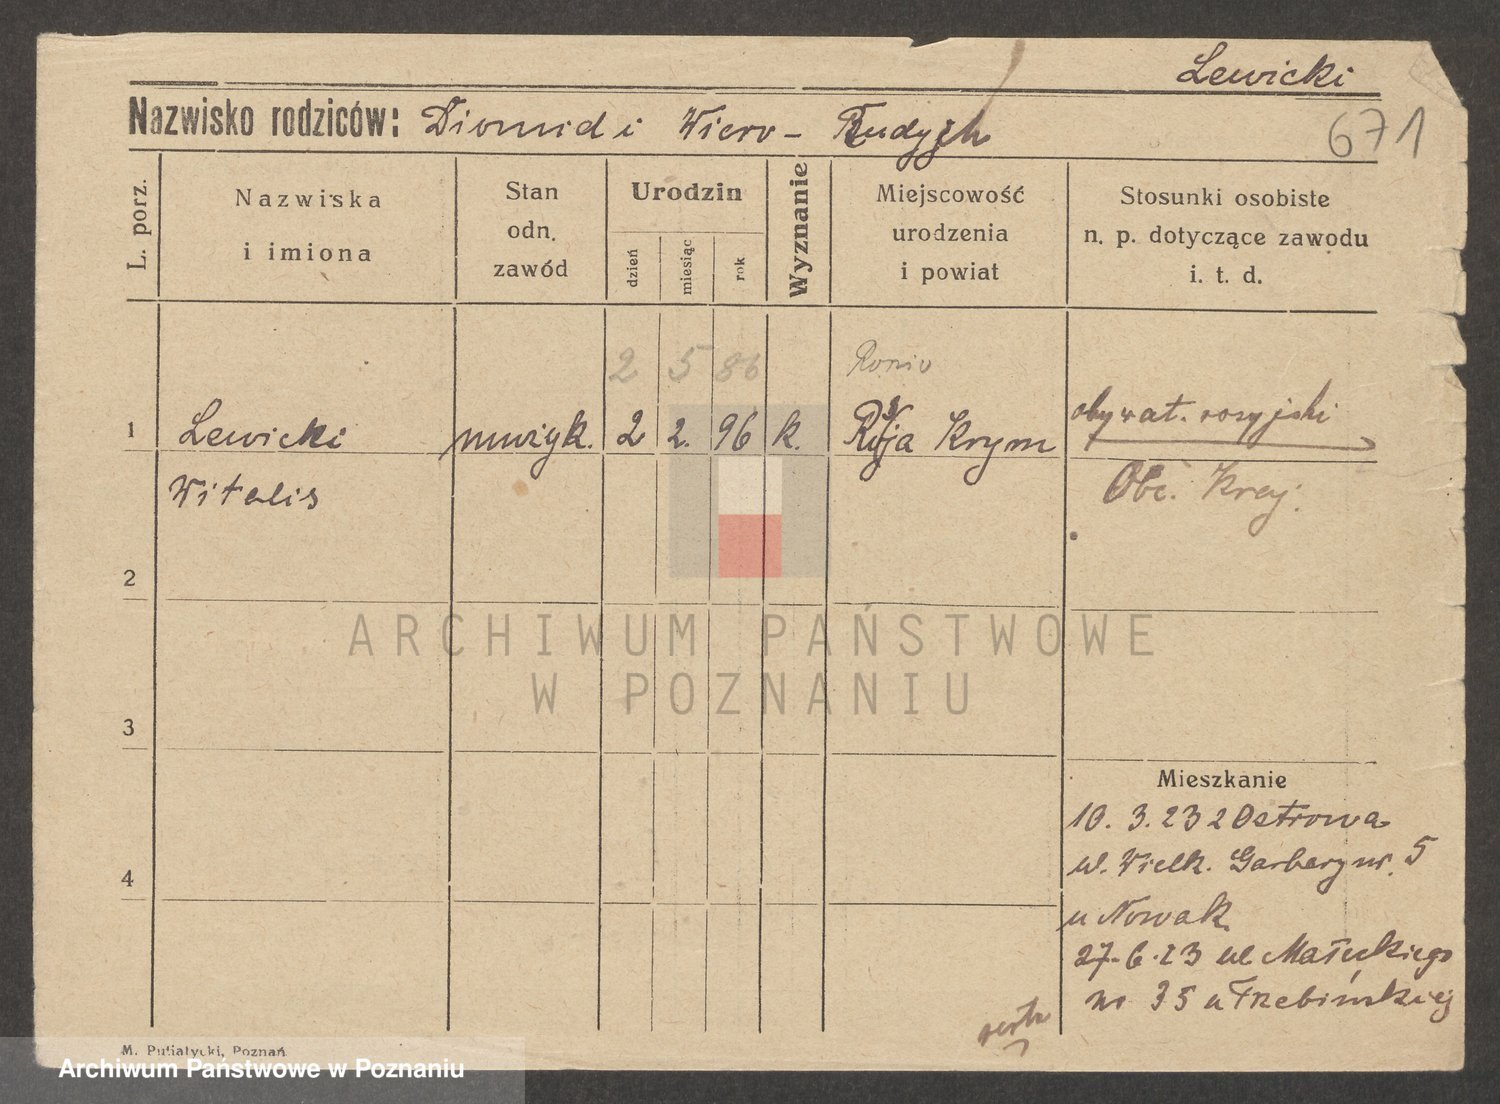 Lewicki
Nazwisko rodziców: Diomid i Wiera - Rudych
671
L. porz.
Nazwiska
i imiona
Stan
odn.
zawód
Urodzin
dzień
miesiąc
rok
Wyznanie
Miejscowość
urodzenia
i powiat
Stosunki osobiste
n. p. dotyczące zawodu
i. t. d.
2 5 86
1 Lewicki muzyk. 2 2. 96 k. Krym obywat. rosyjski
Witalis
2
3
4
Mieszkanie
10. 3. 23 z Ostrowa
ul. Wielk. Garbary nr. 5
u Nowak
27-6-23 ul Małeckiego
nr 35 u Trzebińskiej
M. Putiatycki, Poznań
ARCHIWUM PAŃSTWOWE
W POZNANIU
Archiwum Państwowe w Poznaniu